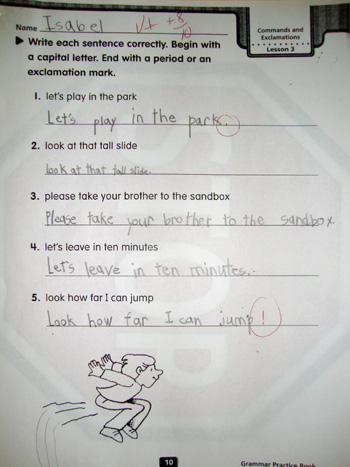 Name Isabel √+ +8/10
Commands and
Exclamations
Lesson 3
Write each sentence correctly. Begin with
a capital letter. End with a period or an
exclamation mark.
1. let's play in the park
Let's play in the park.
2. look at that tall slide
look at that tall slide.
3. please take your brother to the sandbox
Please take your brother to the sandbox.
4. let's leave in ten minutes
Let's leave in ten minutes.
5. look how far I can jump
Look how far I can jump!
10
Grammar Practice Book